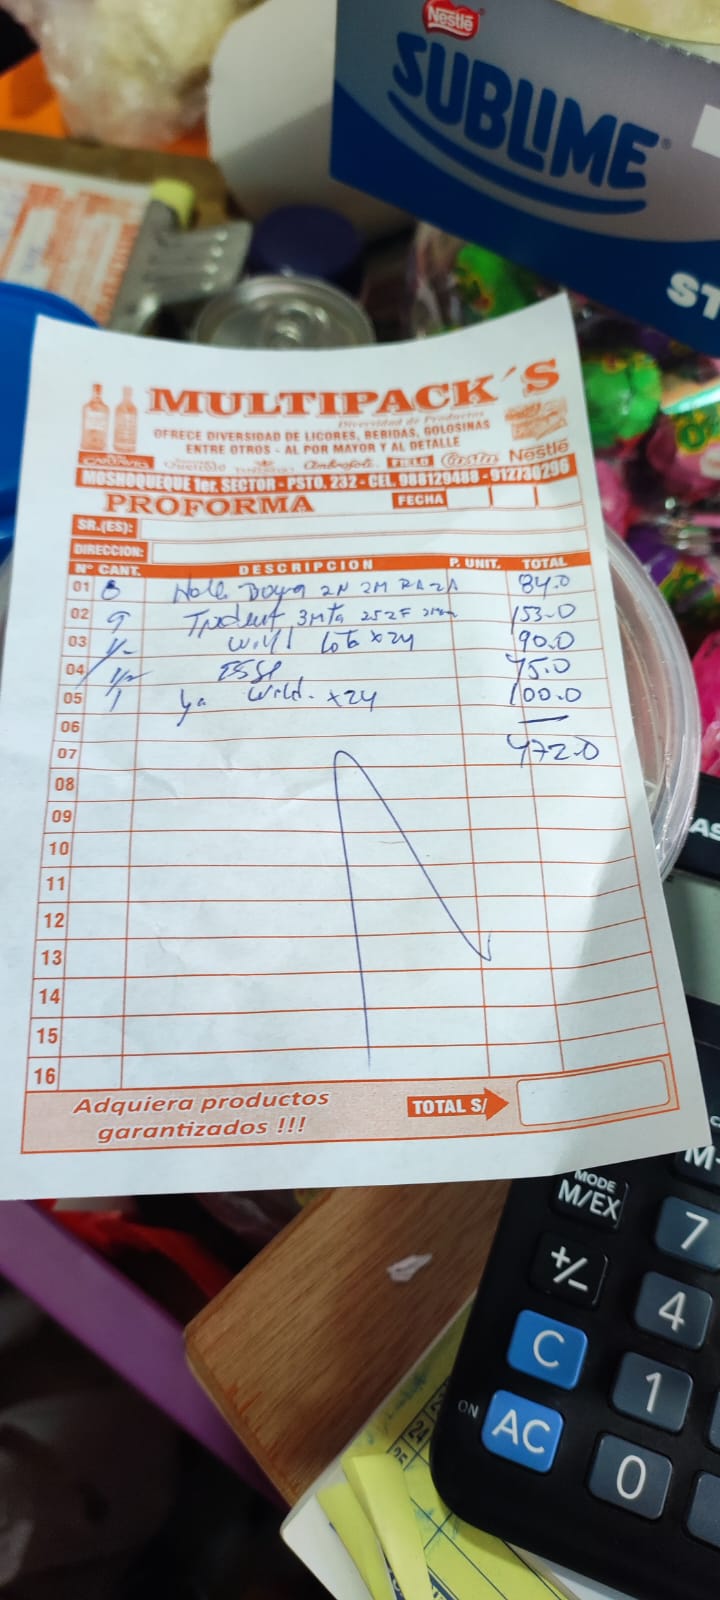 Nestlé
SUBLIME®
ST
MULTIPACK´S
Diversidad de Productos
OFRECE DIVERSIDAD DE LICORES, BEBIDAS, GOLOSINAS
ENTRE OTROS - AL POR MAYOR Y AL DETALLE
CARTAVIO Ambrosoli FIELD Costa Nestlé
MOSHOQUEQUE 1er. SECTOR - PSTO. 232 - CEL. 986129488 - 912730296
PROFORMA FECHA
SR.(ES):
DIRECCION:
N° CANT. DESCRIPCION P. UNIT. TOTAL
01 8 2N 2M 84.0
02 9 Trident 3Mta 153.0
03 Will x24 90.0
04 1/2 75.0
05 1 Wild. x24 100.0
06
07 472.0
08
09
10
11
12
13
14
15
16
Adquiera productos
garantizados !!!
TOTAL S/
MODE
M/EX
M-
7
+/-
4
C
1
ON
AC
0